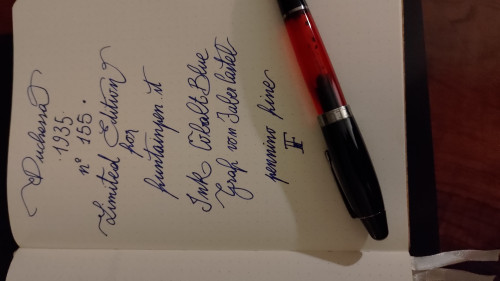 Duchessa
1935
n° 155.
Limited Edition
for
puntampen.it
Ink Cobalt Blue
Graf von Faber Castel
pennino fine
F